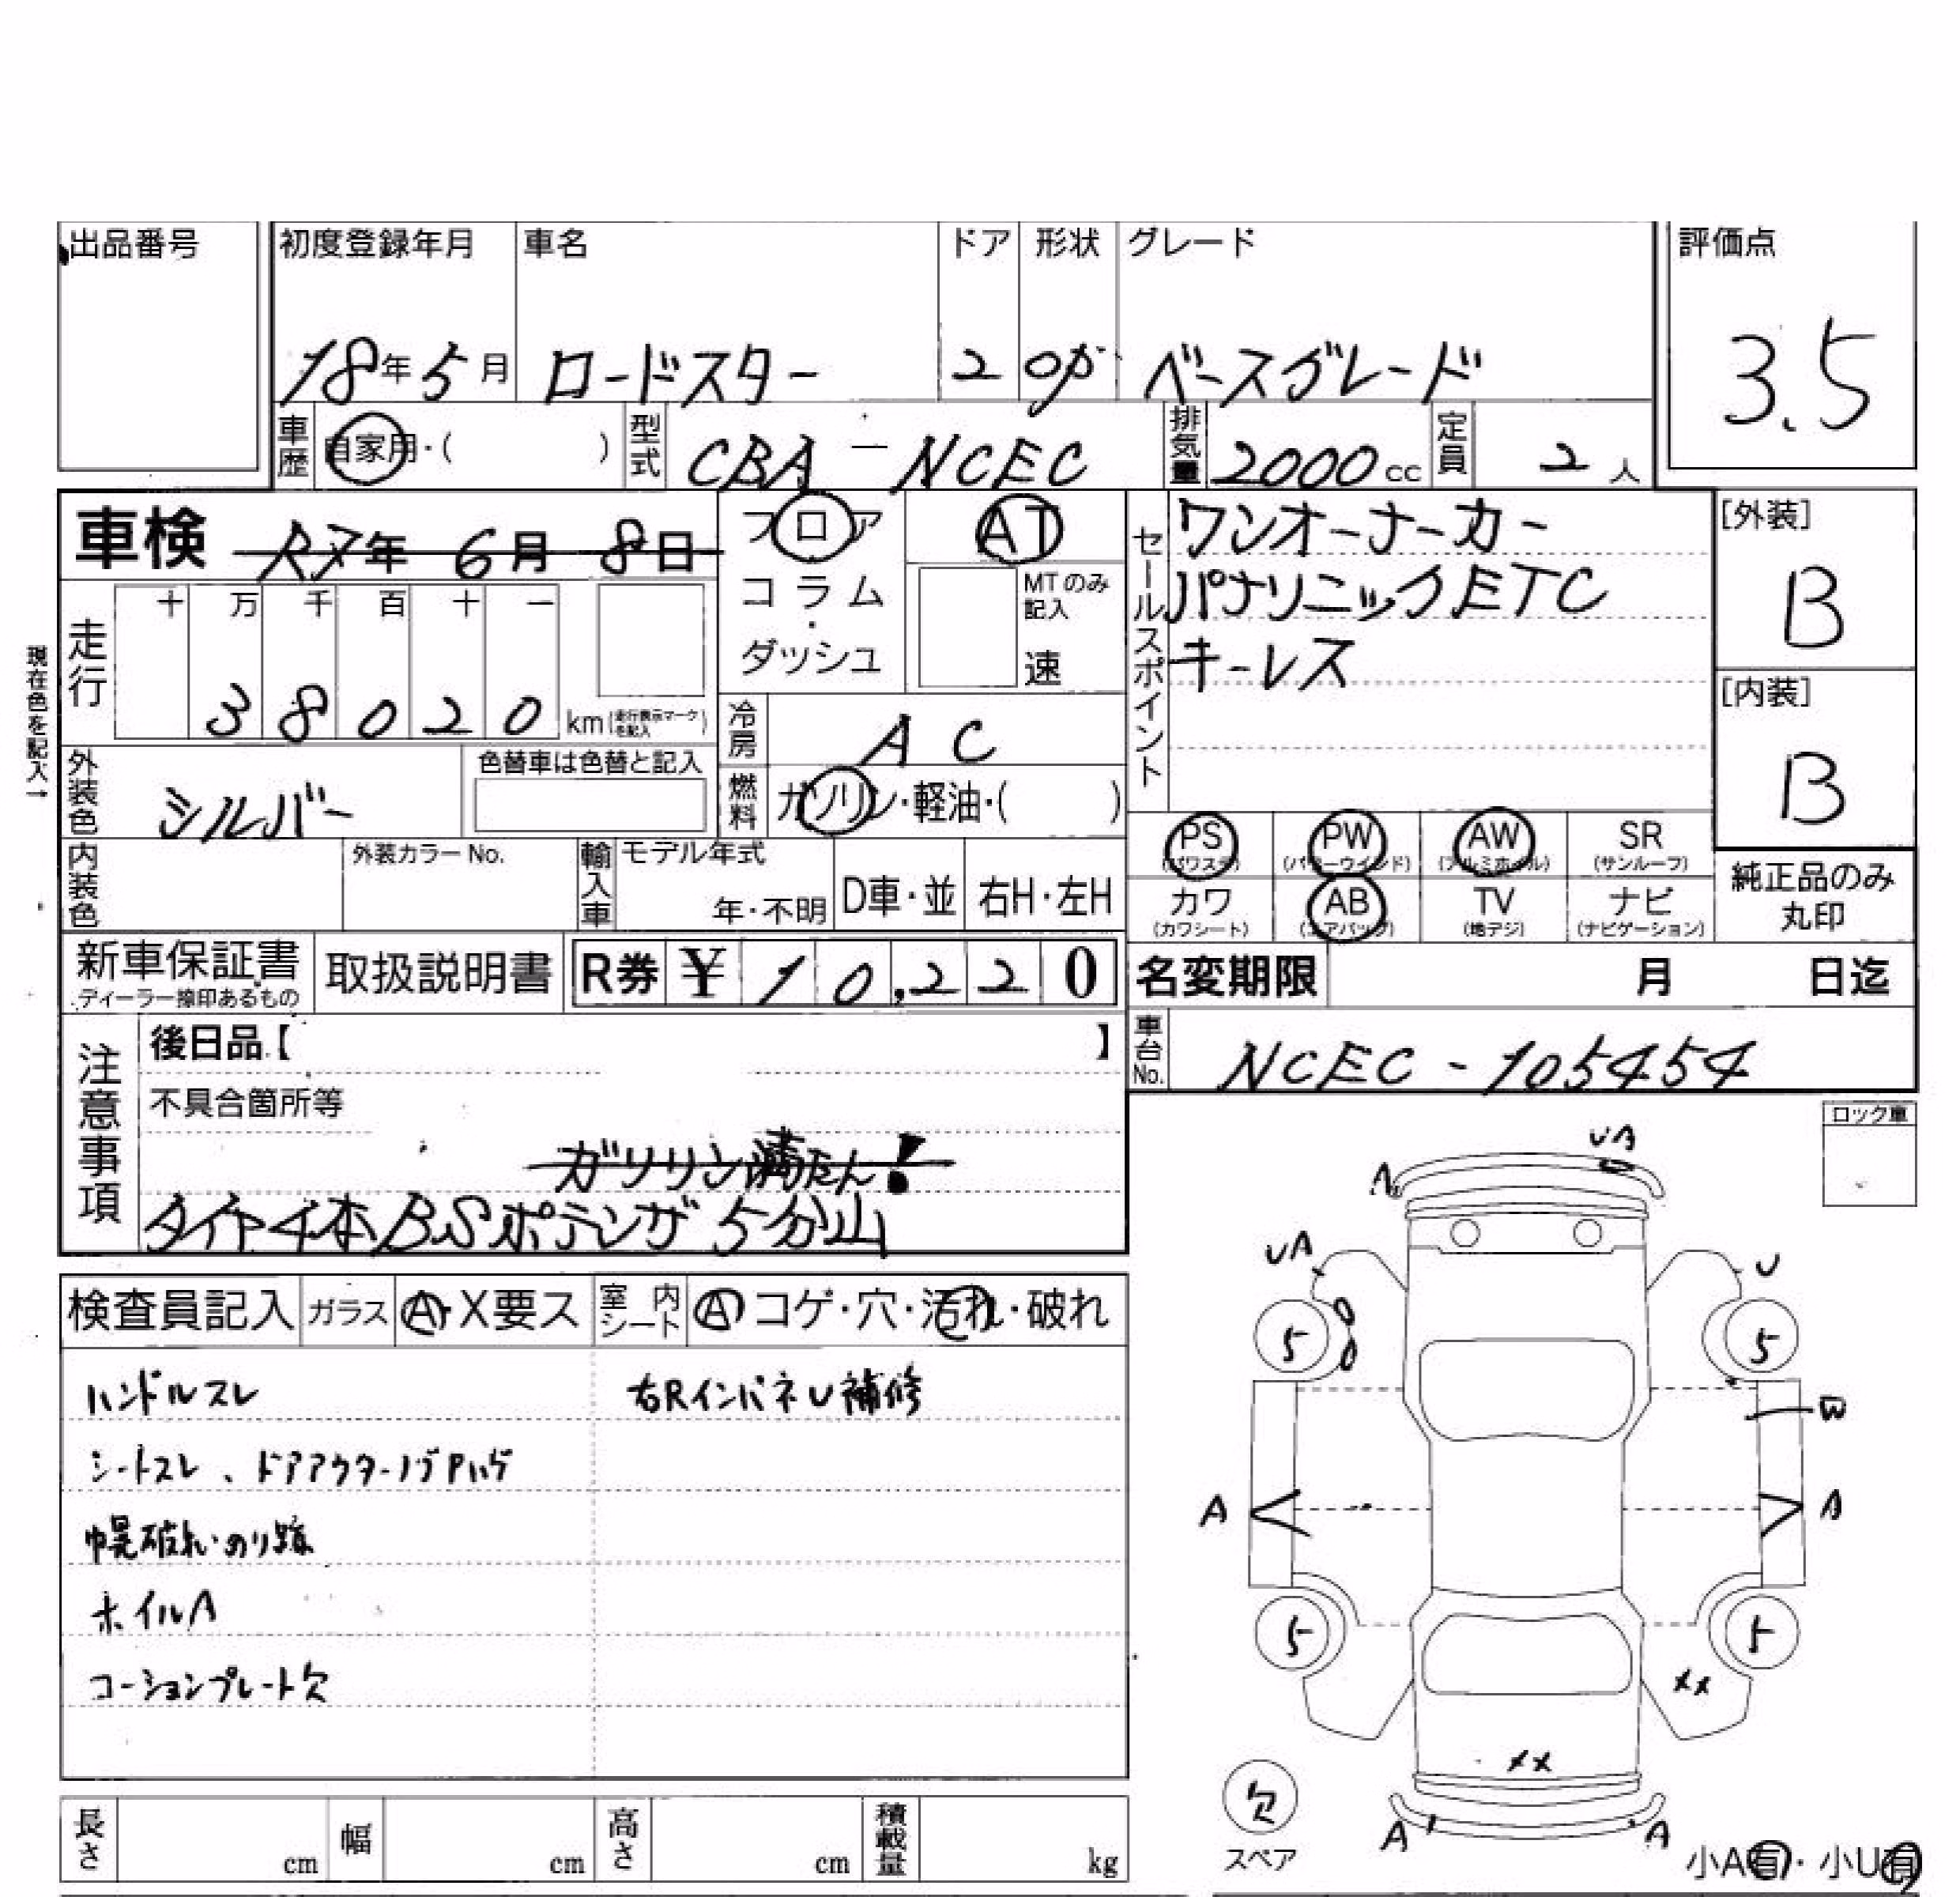 出品番号 初度登録年月 車名 ドア 形状 グレード 評価点
18年5月 ロードスター 2 OP ベースグレード 3.5
車歴 自家用・( ) 型式 CBA-NCEC 排気量 2000cc 定員 2人
車検 R7年 6月 8日 フロア AT
コラム・ダッシュ
MTのみ記入 速
セールスポイント
ワンオーナーカー
パナソニックETC
キーレス
[外装] B
[内装] B
現在色を記入→
走行 十 万 千 百 十 一
38020 km(走行表示マークを記入)
冷房 AC
外装色 シルバー 色替車は色替と記入
燃料 ガソリン・軽油・( )
PS(パワステ) PW(パワーウインド) AW(アルミホイル) SR(サンルーフ)
カワ(カワシート) AB(エアバッグ) TV(地デジ) ナビ(ナビゲーション)
純正品のみ丸印
内装色 外装カラーNo. 輸入車 モデル年式 年・不明 D車・並 右H・左H
新車保証書 ディーラー捺印あるもの 取扱説明書 R券 ¥ 10,220
名変期限 月 日迄
車台No. NCEC-105454
注意事項
後日品【 】
不具合箇所等
ガソリン満たん!
タイヤ4本BSポテンザ5分山
ロック車
検査員記入 ガラス A・X要ス 室内シート A コゲ・穴・汚れ・破れ
ハンドルスレ 右RインパネU補修
シートスレ、ドアアウターノブPハゲ
幌破れ・のり跡
ホイルA
コーションプレート欠
UA
A
UA
U
5
5
W
A
A
5
5
XX
XX
欠
スペア
A
A
小A有・小U有
長さ cm 幅 cm 高さ cm 積載量 kg